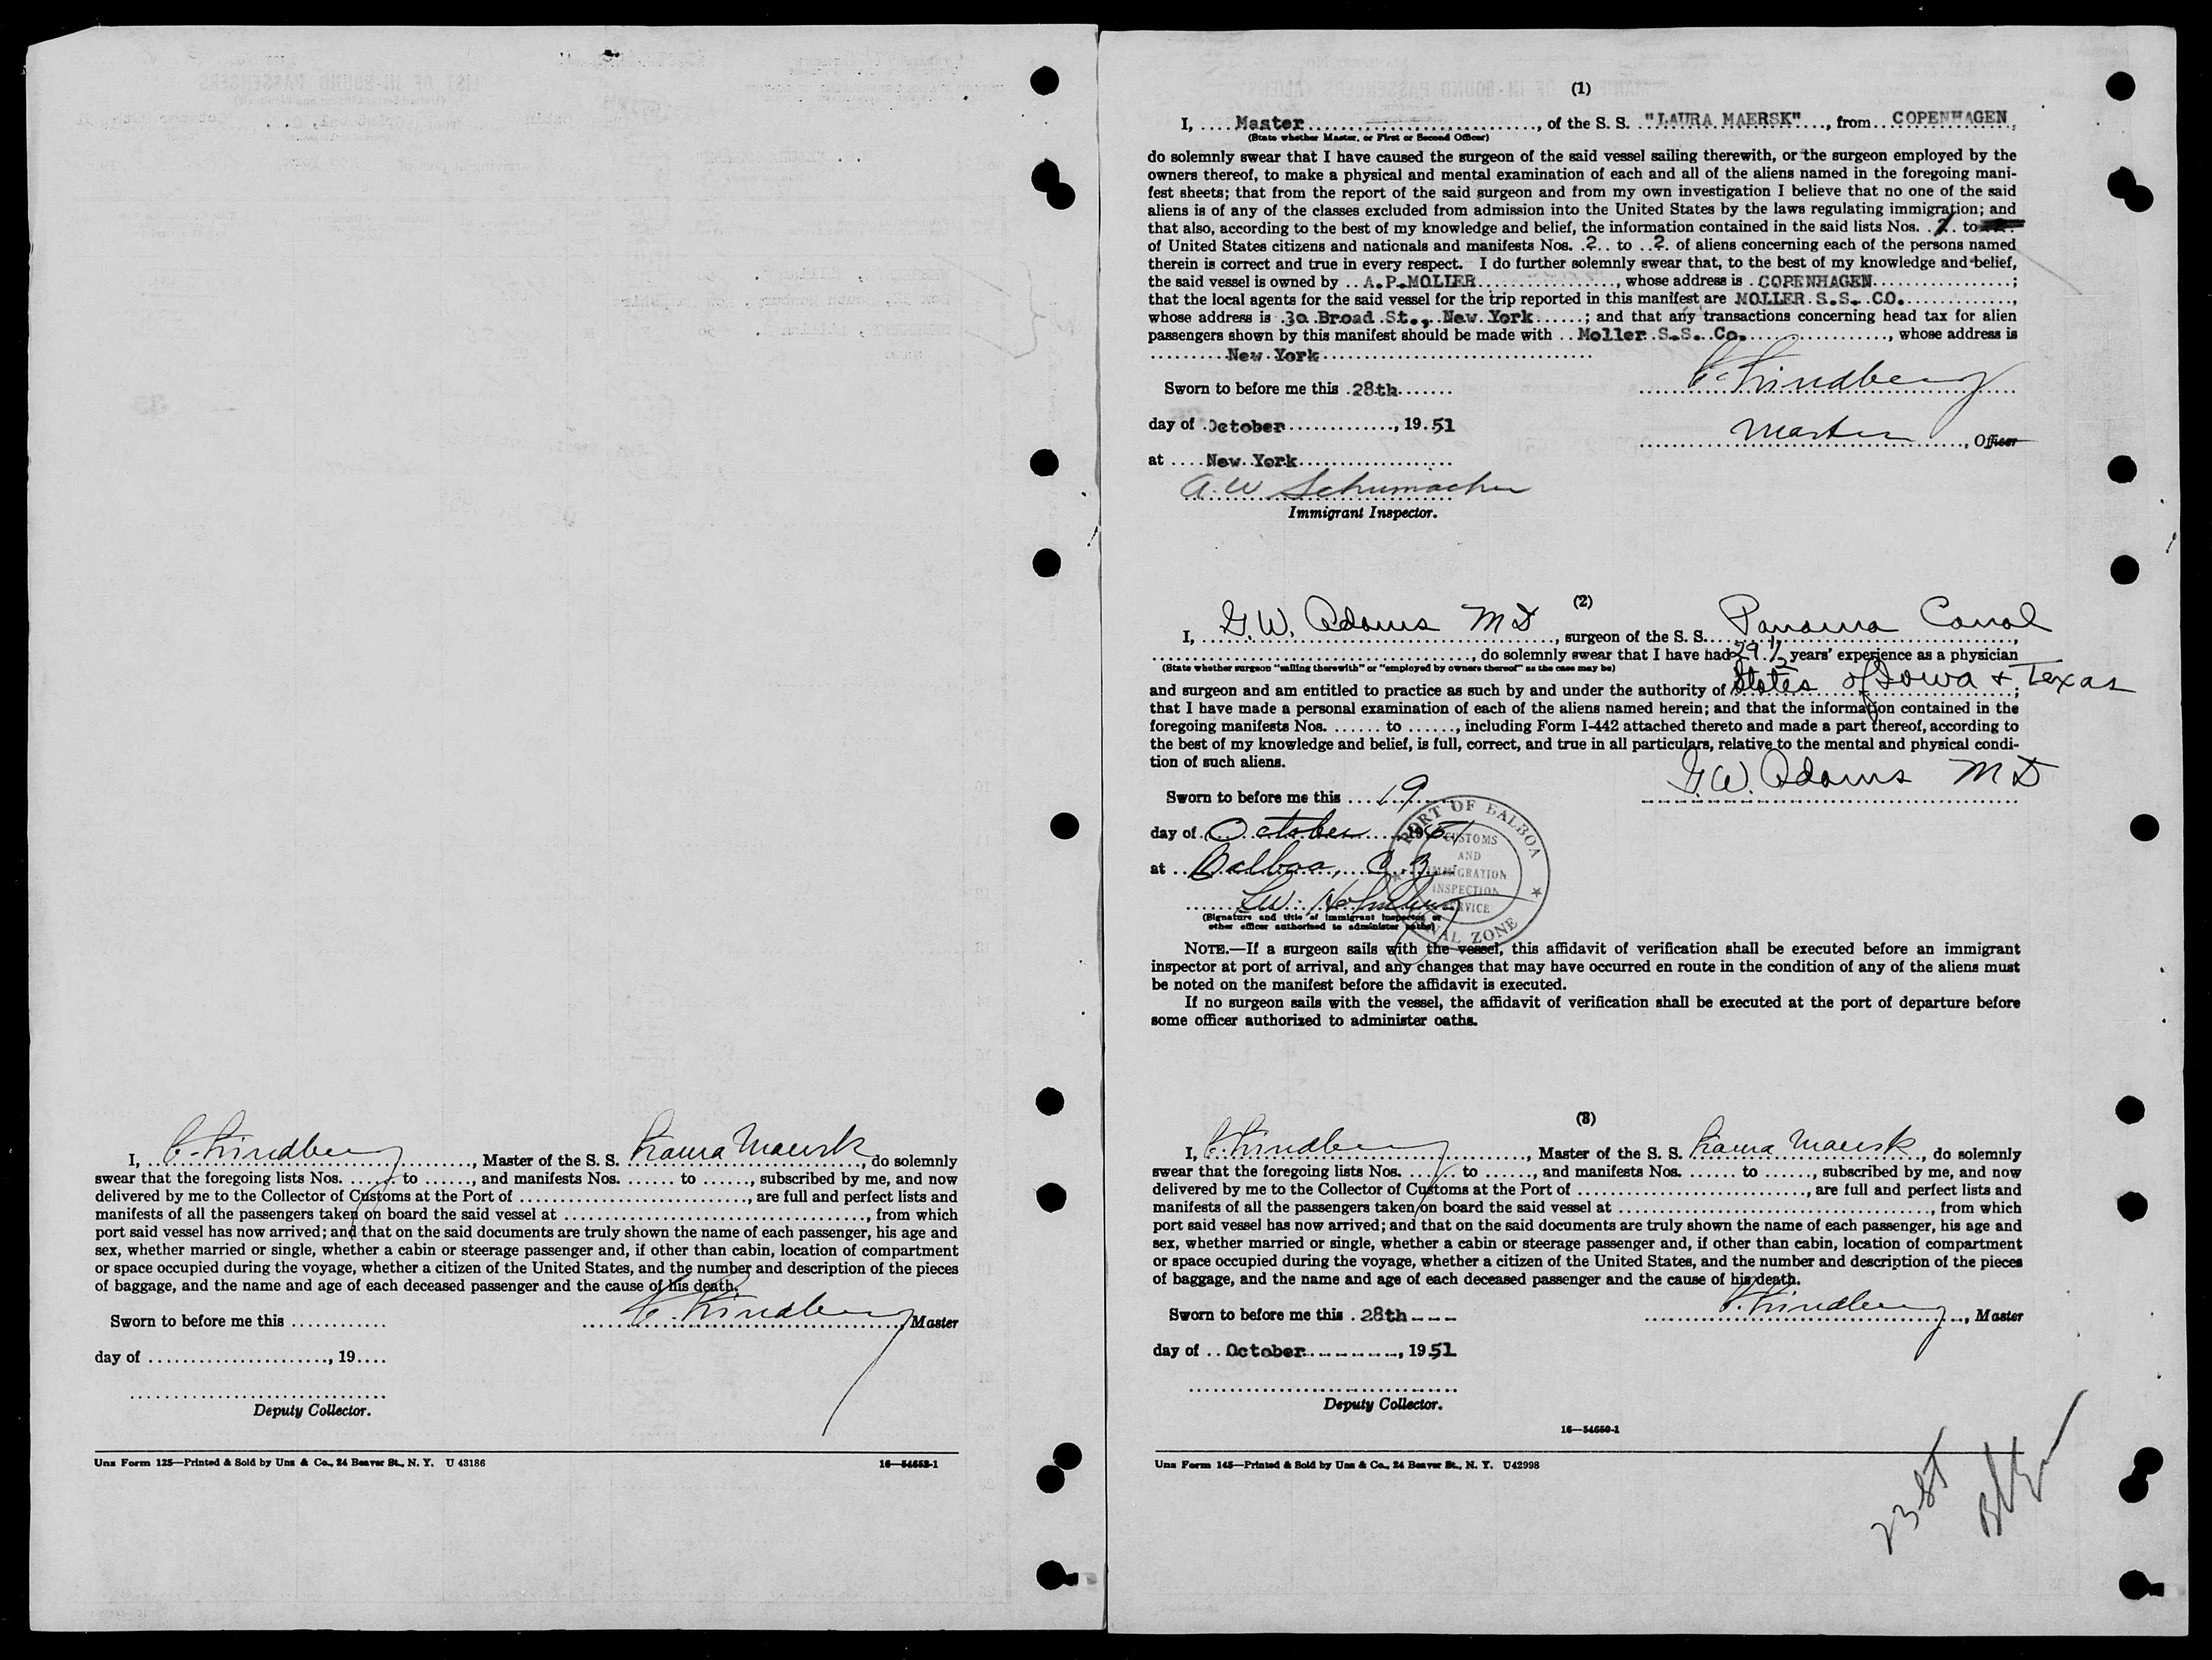 I, C. Lindberg, Master of the S. S. Laura Maersk, do solemnly
swear that the foregoing lists Nos. ....... to ......, and manifests Nos. ....... to ......, subscribed by me, and now
delivered by me to the Collector of Customs at the Port of ............................, are full and perfect lists and
manifests of all the passengers taken on board the said vessel at ...................................., from which
port said vessel has now arrived; and that on the said documents are truly shown the name of each passenger, his age and
sex, whether married or single, whether a cabin or steerage passenger and, if other than cabin, location of compartment
or space occupied during the voyage, whether a citizen of the United States, and the number and description of the pieces
of baggage, and the name and age of each deceased passenger and the cause of his death.
C. Lindberg
Sworn to before me this ............ Master
day of ......................, 19....
Deputy Collector.
Unz Form 125—Printed & Sold by Unz & Co., 24 Beaver St., N. Y. U 43186 16—54652-1
(1)
I, Master, of the S. S. "LAURA MAERSK", from COPENHAGEN,
(State whether Master, or First or Second Officer)
do solemnly swear that I have caused the surgeon of the said vessel sailing therewith, or the surgeon employed by the
owners thereof, to make a physical and mental examination of each and all of the aliens named in the foregoing mani-
fest sheets; that from the report of the said surgeon and from my own investigation I believe that no one of the said
aliens is of any of the classes excluded from admission into the United States by the laws regulating immigration; and
that also, according to the best of my knowledge and belief, the information contained in the said lists Nos. to
of United States citizens and nationals and manifests Nos. 2 to 2 of aliens concerning each of the persons named
therein is correct and true in every respect. I do further solemnly swear that, to the best of my knowledge and belief,
the said vessel is owned by A.P.MOLLER, whose address is COPENHAGEN;
that the local agents for the said vessel for the trip reported in this manifest are MOLLER S.S. CO.,
whose address is 30 Broad St., New York; and that any transactions concerning head tax for alien
passengers shown by this manifest should be made with Moller S.S. Co., whose address is
New York
C. Lindberg
Sworn to before me this 28th
day of October, 19 51
Master, Officer
at New York
A. W Schumacher
Immigrant Inspector.
(2)
I, G.W. Adams MD, surgeon of the S. S. Panama Canal,
, do solemnly swear that I have had 29 1/2 years' experience as a physician
(State whether surgeon "sailing therewith" or "employed by owners thereof" as the case may be)
and surgeon and am entitled to practice as such by and under the authority of States of Iowa & Texas;
that I have made a personal examination of each of the aliens named herein; and that the information contained in the
foregoing manifests Nos. ....... to ......, including Form I-442 attached thereto and made a part thereof, according to
the best of my knowledge and belief, is full, correct, and true in all particulars, relative to the mental and physical condi-
tion of such aliens.
G.W. Adams MD
Sworn to before me this 19
day of October 1951
at Balboa, C.Z.
PORT OF BALBOA
CUSTOMS
AND
IMMIGRATION
INSPECTION
SERVICE
CANAL ZONE
(Signature and title of immigrant inspector or
other officer authorized to administer oaths)
NOTE.—If a surgeon sails with the vessel, this affidavit of verification shall be executed before an immigrant
inspector at port of arrival, and any changes that may have occurred en route in the condition of any of the aliens must
be noted on the manifest before the affidavit is executed.
If no surgeon sails with the vessel, the affidavit of verification shall be executed at the port of departure before
some officer authorized to administer oaths.
(3)
I, C. Lindberg, Master of the S. S. Laura Maersk, do solemnly
swear that the foregoing lists Nos. ....... to ......, and manifests Nos. ....... to ......, subscribed by me, and now
delivered by me to the Collector of Customs at the Port of ............................, are full and perfect lists and
manifests of all the passengers taken on board the said vessel at ...................................., from which
port said vessel has now arrived; and that on the said documents are truly shown the name of each passenger, his age and
sex, whether married or single, whether a cabin or steerage passenger and, if other than cabin, location of compartment
or space occupied during the voyage, whether a citizen of the United States, and the number and description of the pieces
of baggage, and the name and age of each deceased passenger and the cause of his death.
Sworn to before me this 28th C. Lindberg, Master
day of October, 19 51
Deputy Collector.
16—54650-1
Unz Form 145—Printed & Sold by Unz & Co., 24 Beaver St., N. Y. U42998